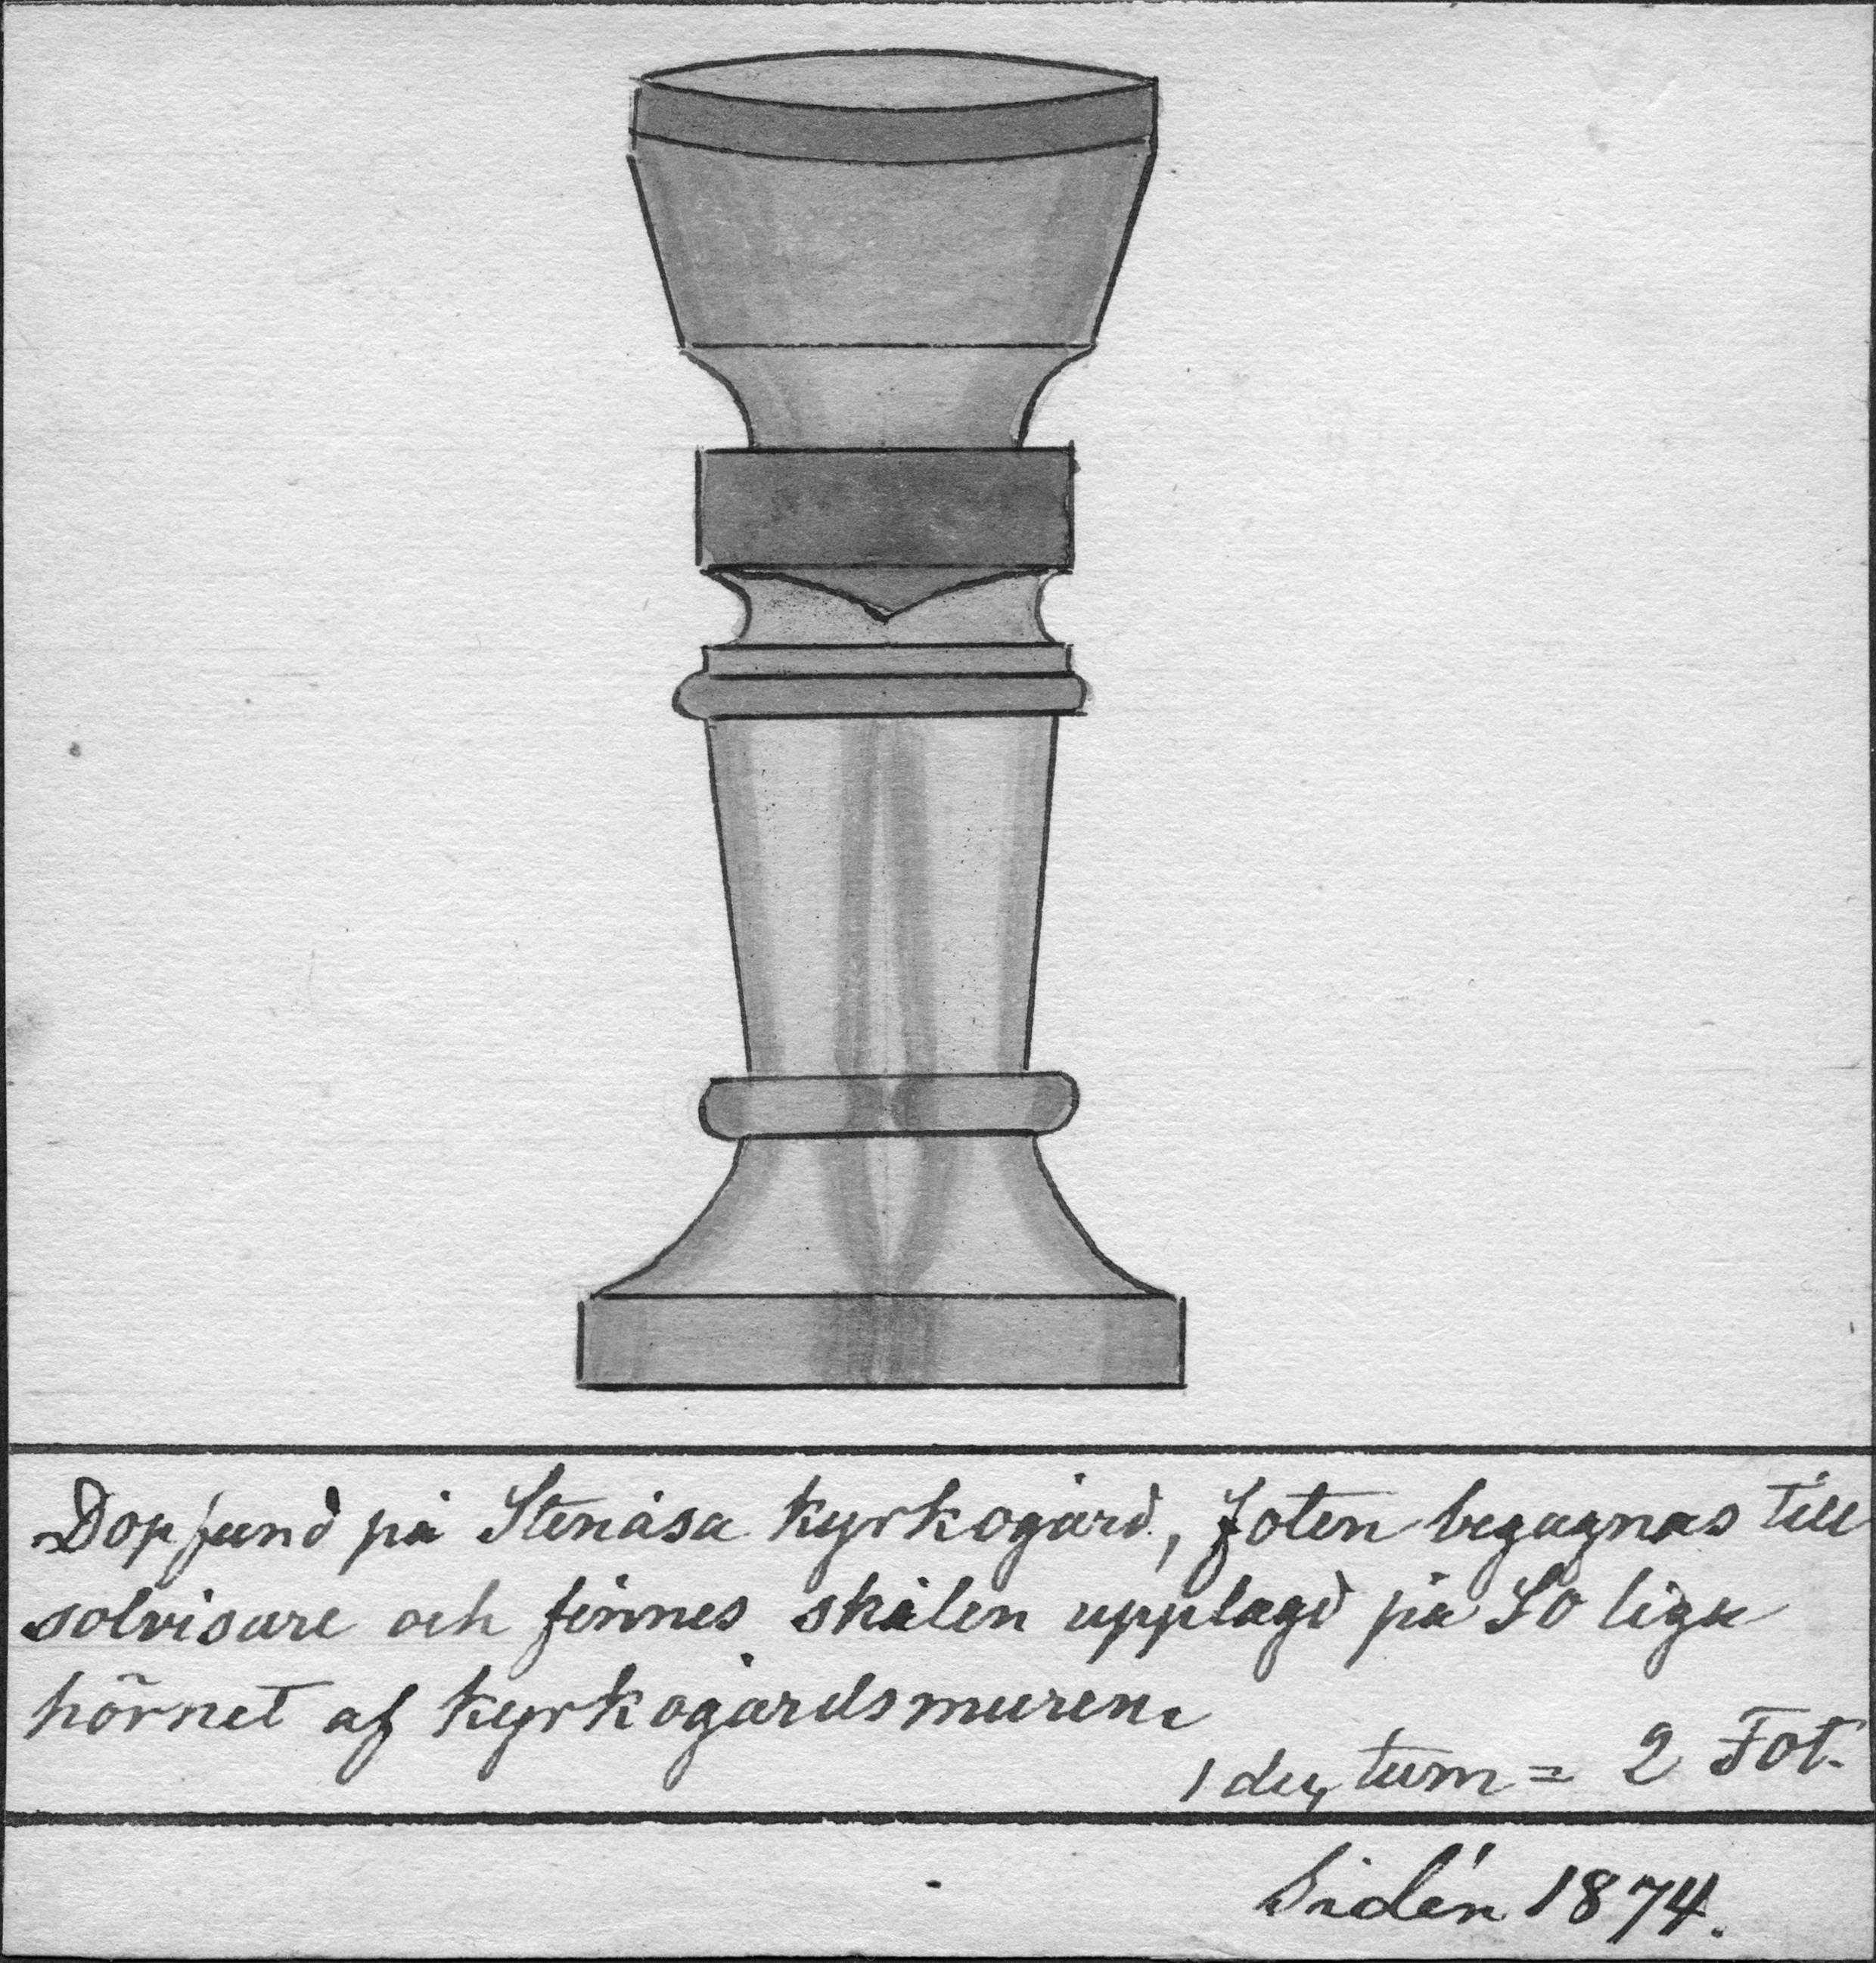 Dopfund på Stenåsa Kyrkogård, foten begagnas till
solvisare och finnes skålen upplagd på SO liga
hörnet af Kyrkogårdsmuren.
1 dec, tum = 2 Fot.
Sidén 1874.